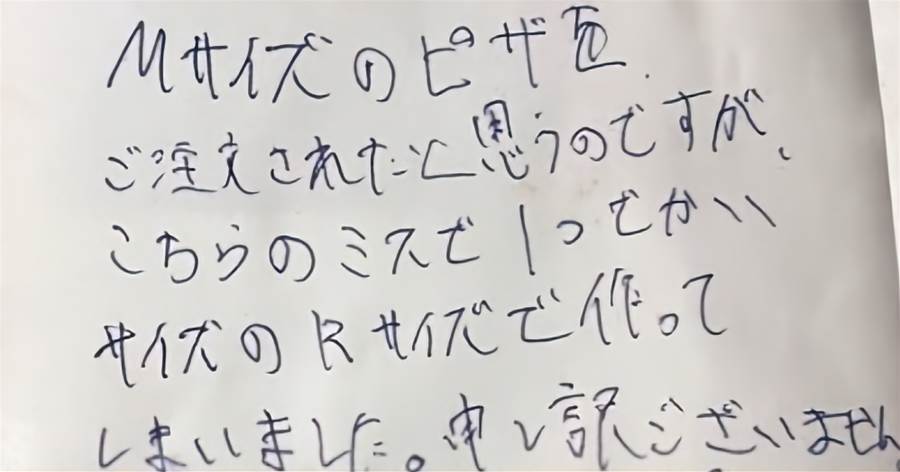 Mサイズのピザを
ご注文されたと思うのですが、
こちらのミスで1つでかい
サイズのRサイズで作って
しまいました。申し訳ございません